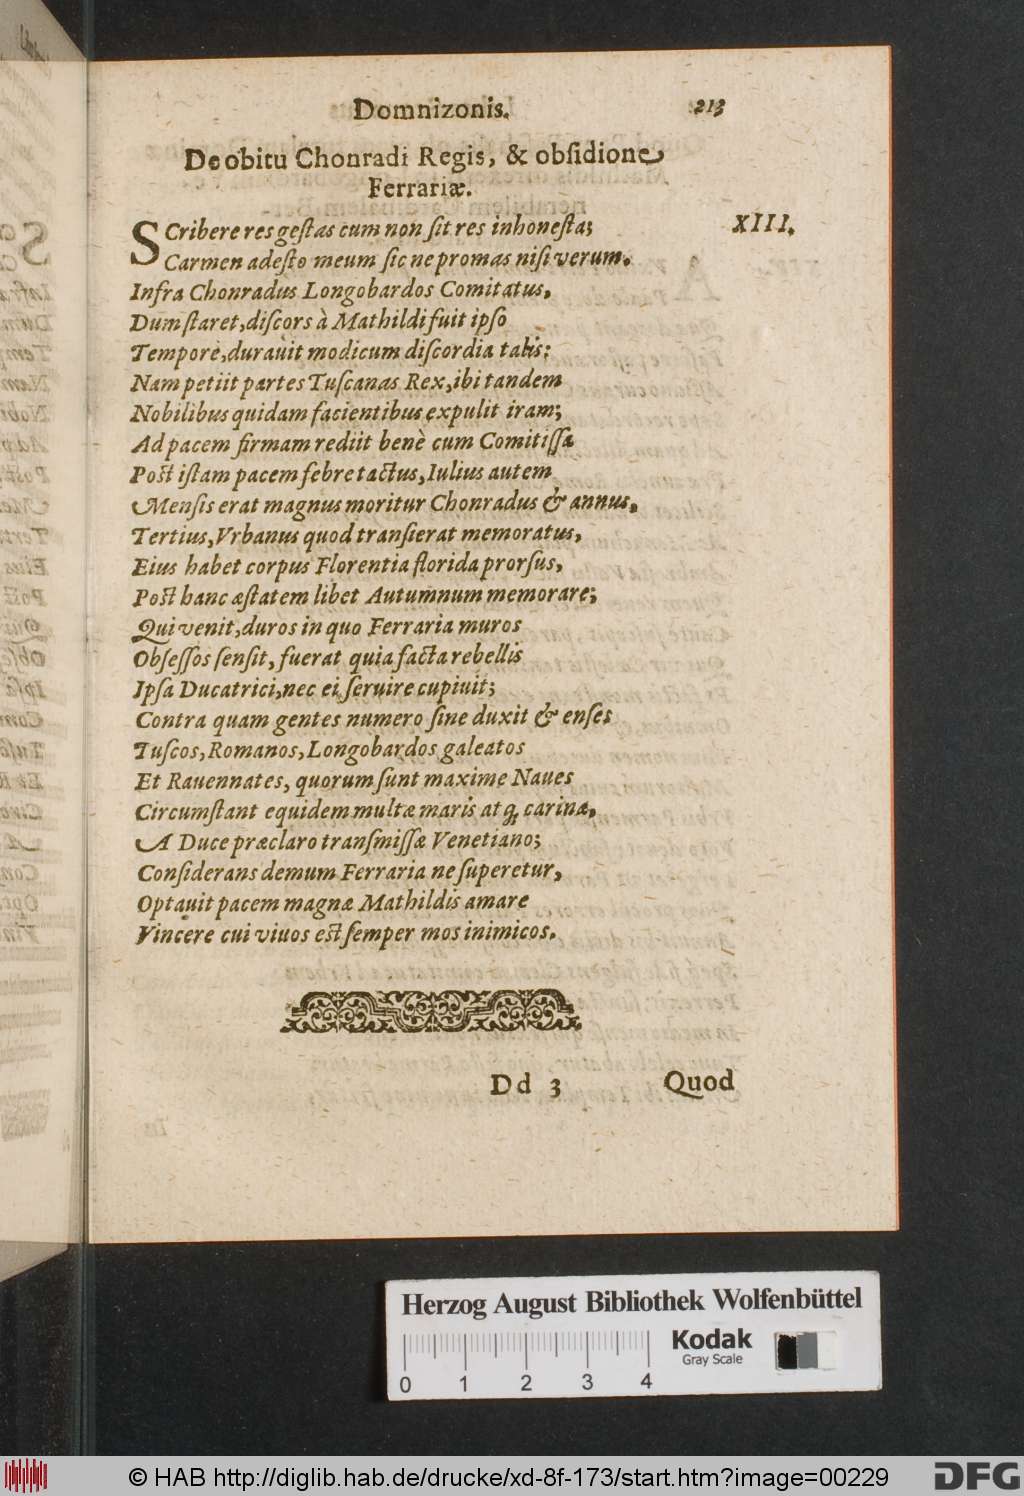 Domnizonis. 213
De obitu Chonradi Regis, & obſidione
Ferrariæ.
XIII.
SCribere res geſtas cum non ſit res inhoneſta;
Carmen adeſto meum ſic ne promas niſi verum.
Infra Chonradus Longobardos Comitatus,
Dum ſtaret, diſcors à Mathildi fuit ipſo
Tempore, durauit modicum diſcordia talis:
Nam petiit partes Tuſcanas Rex, ibi tandem
Nobilibus quidam facientibus expulit iram;
Ad pacem firmam rediit benè cum Comitiſſa
Poſt iſtam pacem febre tactus, Iulius autem
Menſis erat magnus moritur Chonradus & annus,
Tertius, Vrbanus quod tranſierat memoratus,
Eius habet corpus Florentia florida prorſus,
Poſt hanc æſtatem libet Autumnum memorare;
Qui venit, duros in quo Ferraria muros
Obſeſſos ſenſit, fuerat quia facta rebellis
Ipſa Ducatrici, nec ei ſeruire cupiuit;
Contra quam gentes numero ſine duxit & enſes
Tuſcos, Romanos, Longobardos galeatos
Et Rauennates, quorum ſunt maxime Naues
Circumſtant equidem multæ maris atq; carinæ,
A Duce præclaro tranſmiſſæ Venetiano;
Conſiderans demum Ferraria ne ſuperetur,
Optauit pacem magnæ Mathildis amare
Vincere cui viuos eſt ſemper mos inimicos.
Dd 3 Quod
Herzog August Bibliothek Wolfenbüttel
Kodak
Gray Scale
0 1 2 3 4
© HAB http://diglib.hab.de/drucke/xd-8f-173/start.htm?image=00229
DFG